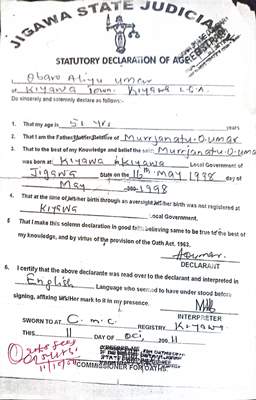 JIGAWA STATE JUDICIA
STATUTORY DECLARATION OF AGE
I Obaro Aliyu Umar
of Kiyawa Town Kiyawa L.G.A.
Do sincerely and solemnly declare as follows:-
1. That my age is 51 yrs years
2. That I am the Father/Mother/Relative of Murrjanatu.O.umar
3. That to the best of my Knowledge and belief the said Murrjanatu.O.uma
was born at Kiyawa Kiyawa Local Government of
Jigawa State on the 16th May 1998 day of
May 200 1998
4. That at the time of his/her birth through an oversight his/her birth was not registered at
Kiyawa Local Government.
5 That I make this solemn declaration in good faith believing same to be true to the best of
my knowledge, and by virtue of the provision of the Oath Act. 1963.
DECLARANT
6. I certify that the above declarante was read over to the declarant and interpreted in
English Language who seemed to have under stood before
signing, affixing his/her mark to it in my presence.
INTERPRETER
SWORN TO AT C.M.C REGISTRY Kiyawa
THIS 11 DAY OF Oct, 200 11
COMMISSIONER FOR OATHS